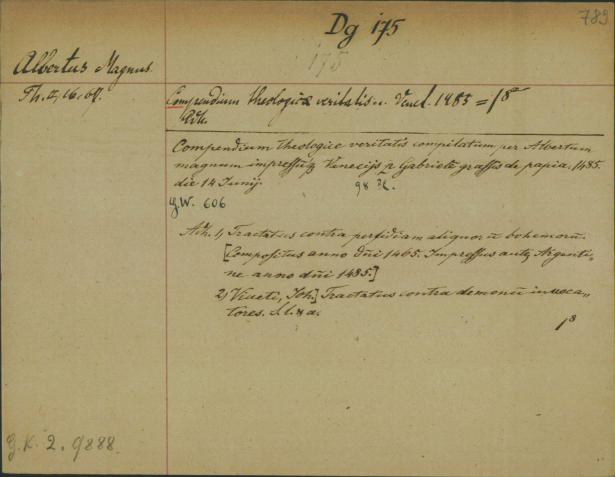 789
Dg 175
175
Albertus Magnus.
Th. II, 16. 
Compendium theologicæ veritatis. Venet. 1485 = 1⁸
Adh.
Compendium theologice veritatis compilatum per Albertum
magnum impressuȝ Venecijs p Gabriele grassis de papia. 1485.
die 14 Junij. 98 Bl.
G.W. 606
Adh. 1) Tractatus contra perfidiam aliquor̄ū bohemorū.
[Compositus anno dñi 1405. Impressus autȝ Argenti-
ne anno dñi 1485.]
2) Viueti, Joh.] Tractatus contra demonū inuoca-
tores. S. l. & a.
1⁸
G.K. 2. 9888.